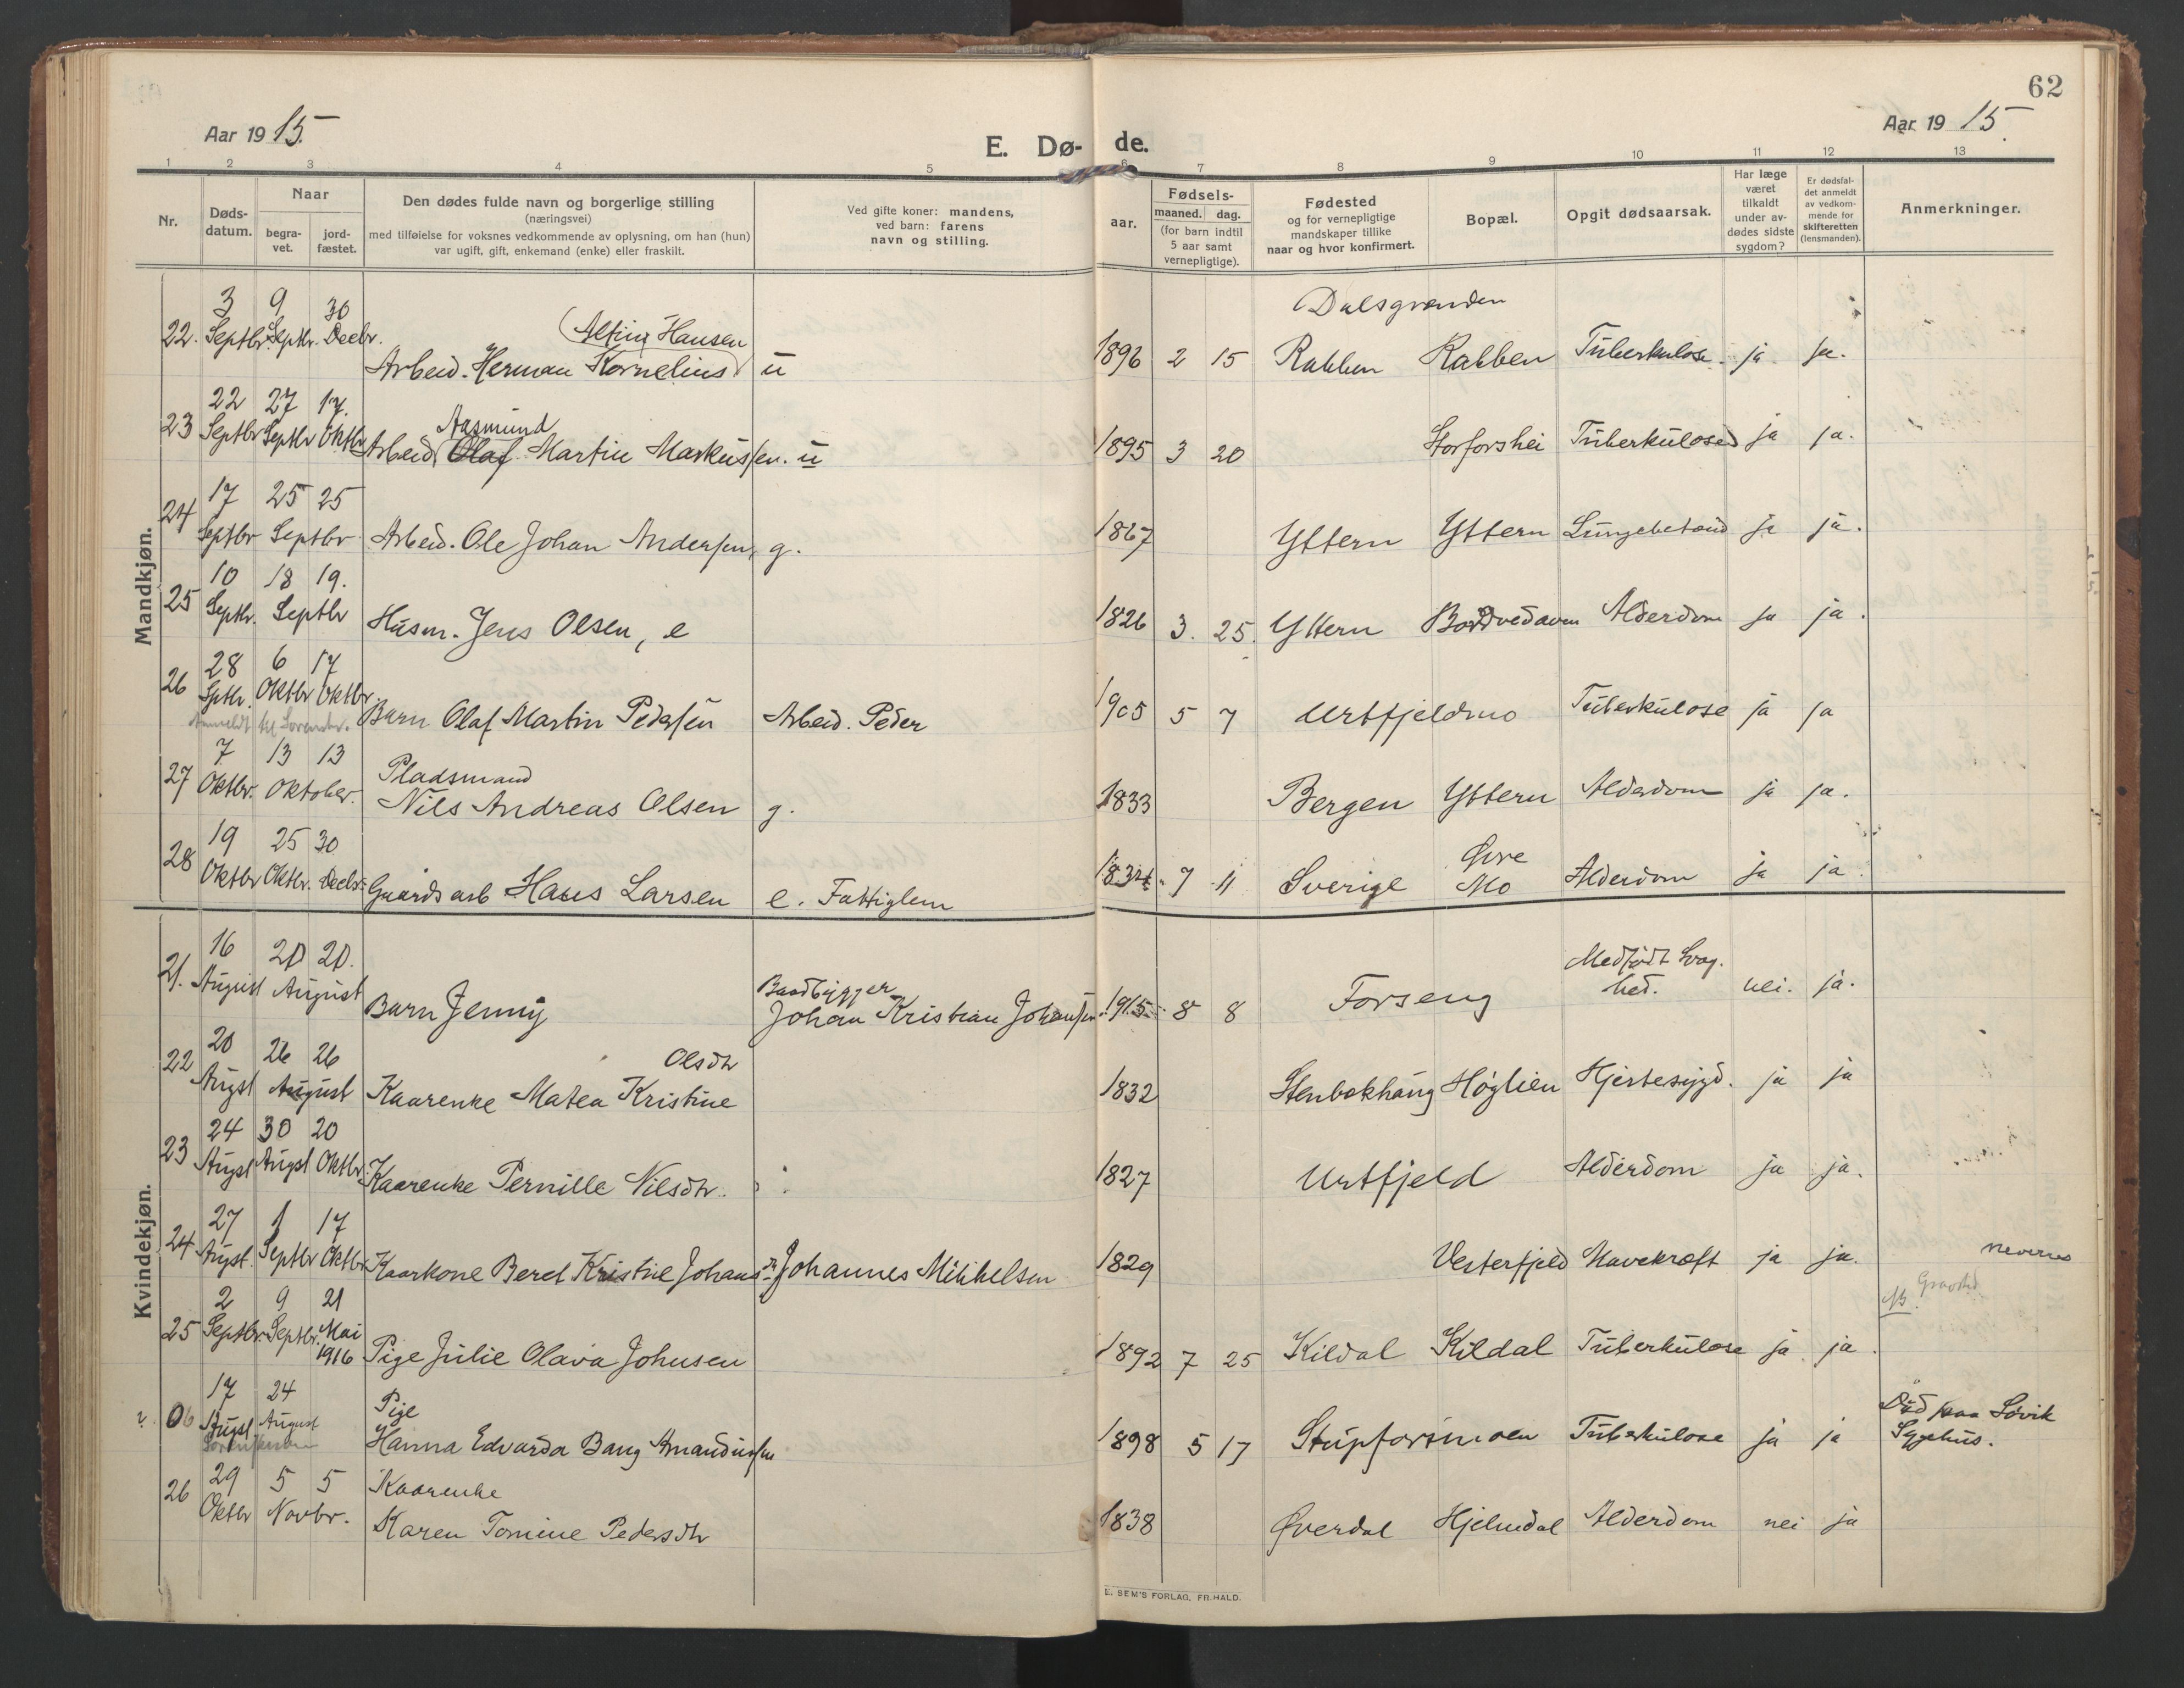 62
Aar 1915.
E. Dø- de.
Aar 1915.
1 2 3 4 5 6 7 8 9 10 11 12 13
Nr.
Døds-
datum.
Naar
begra-
vet.
jord-
fæstet.
Den dødes fulde navn og borgerlige stilling
(næringsvei)
med tilføielse for voksnes vedkommende av oplysning, om han (hun)
var ugift, gift, enkemand (enke) eller fraskilt.
Ved gifte koner: mandens,
ved barn: farens
navn og stilling.
Fødsels-
aar.
maaned. dag.
(for barn indtil
5 aar samt
vernepligtige).
Fødested
og for vernepligtige
mandskaper tillike
naar og hvor konfirmert.
Bopæl.
Opgit dødsaarsak.
Har læge
været
tilkaldt
under av-
dødes sidste
sygdom?
Er dødsfal-
det anmeldt
av vedkom-
mende for
skifteretten
(lensmanden).
Anmerkninger.
Mandkjøn.
3 9 30 Dalsgrenden
(Alfing Hansen
22. Septbr. Septbr. Decbr. Arbeid. Herman Kornelius) u 1896 2 15 Rabben Rabben Tuberkulose. ja ja.
22 27 17.
Aasmund
23 Septbr Septbr Oktbr Arbeid Olaf Martin Markussen. u 1895 3 20 Storforshei Tuberkulose ja ja.
17 25 25
24 Septbr Septbr Arbeid. Ole Johan Andersen, g. 1867 Yttern Yttern Lungebetænd ja ja.
10 18 19.
25 Septbr. Septbr Husm. Jens Olsen, e 1826 3. 25. Yttern Alderdom ja ja.
28 6 17
26 Sptbr. Oktbr Oktbr. Barn Olaf Martin Pedersen Arbeid. Peder 1905 5 7 Urtfjeldmo Tuberkulose ja ja
Anmeldt til
7 13 13 Pladsmand
27 Oktbr. Oktober. Nils Andreas Olsen g. 1833 Bergen Yttern Alderdom ja ja.
19 25 30 Øvre
28 Oktbr Oktbr. Decbr. Gaards arb Hans Larsen e. Fattiglem 1834 7 11 Sverige Mo Alderdom ja ja.
Kvindekjøn.
16 20 20. Baadbygger Medfødt Svag-
21. August August Barn Jenny Johan Kristian Johansen 1915 8 8 Forseng hed. nei. ja.
20 26 26 Olsdtr
22 Augst August Kaarenke Matea Kristine 1832 Stenbekhaug Høglien Hjertesygd. ja ja
24 30 20
23 Augst Augst Oktbr. Kaarenke Pernille Nilsdtr. 1827 Urtfjeld Alderdom ja ja.
27 1 17
24 Augst. Septbr Oktbr Kaarkone Beret Kristine Johansdtr Johannes Mikkelsen 1829 Vesterfjeld Mavekræft ja ja. neverness
NB. Gravsted
2 9 21
25 Septbr. Septbr. Mai
1916 Pige Julie Olava Johnsen 1892 7 25 Kildal Kildal Tuberkulose ja ja.
17 24 Pige Död paa Sövik
06 Augst August Hanna Edvarda Bang Amandussen 1898 5 17 Stupforsmoen Tuberkulose ja ja Sygehus.
29 5 5 Kaarenke
26 Oktbr Novbr. Karen Tomine Pedersdtr 1838 Øverdal Hjelmdal Alderdom nei ja
E. SEM'S FORLAG, FR.HALD.